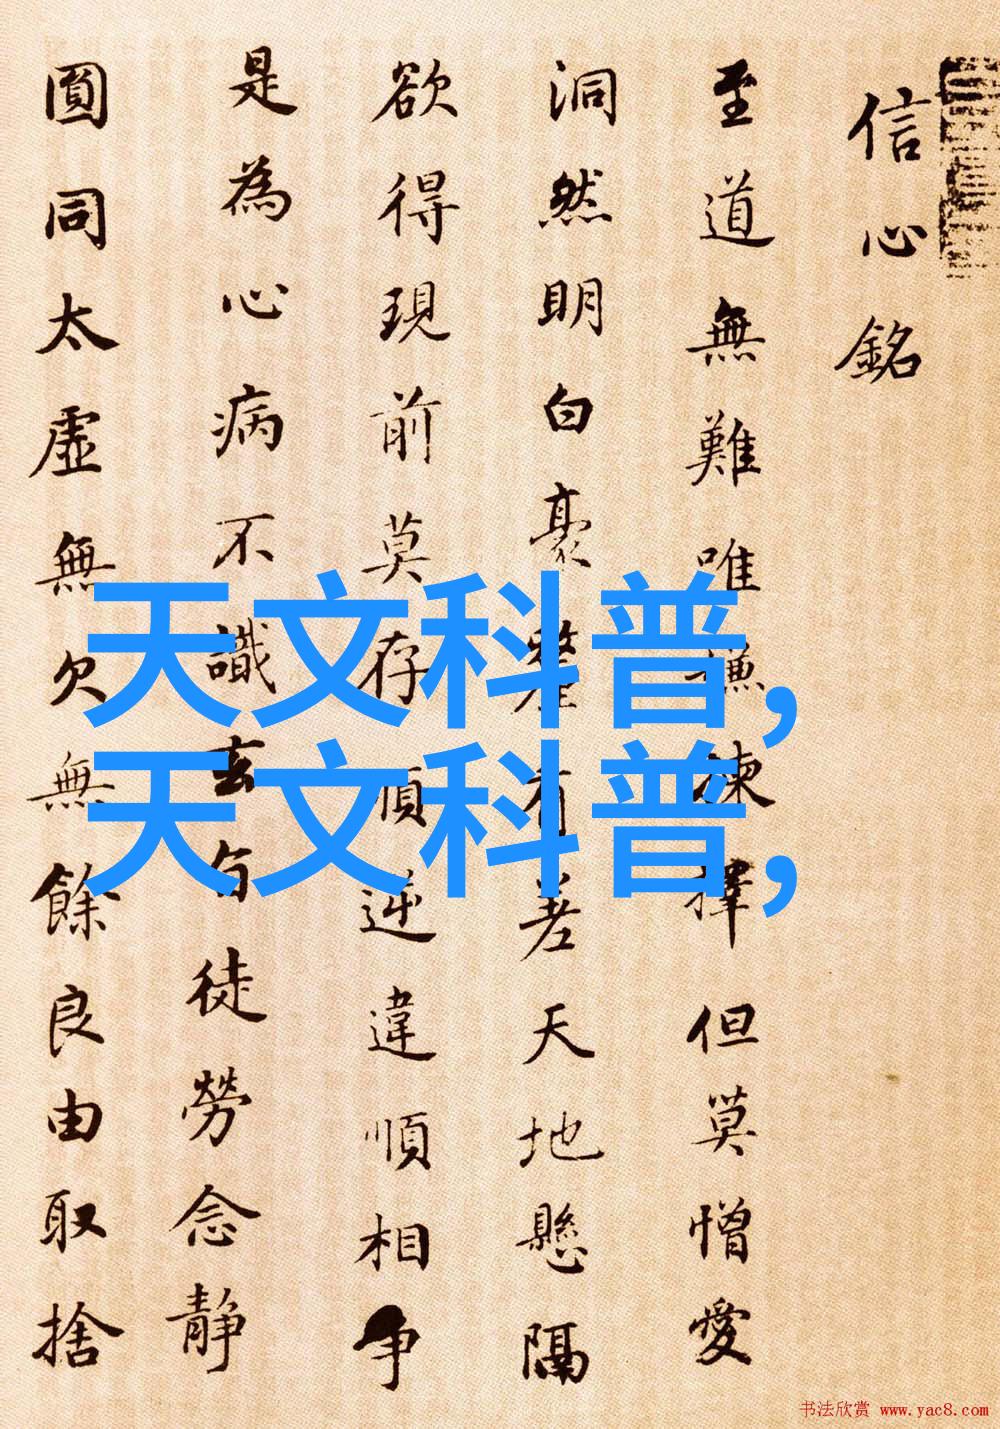 信心銘
至道無難唯嫌揀擇但莫憎愛
洞然明白豪釐有差天地懸隔
欲得現前莫存順逆違順相争
是為心病不識玄旨徒勞念静
圓同太虛無欠無餘良由取捨
天文科普,
天文科普,
书法欣赏 www.yac8.com